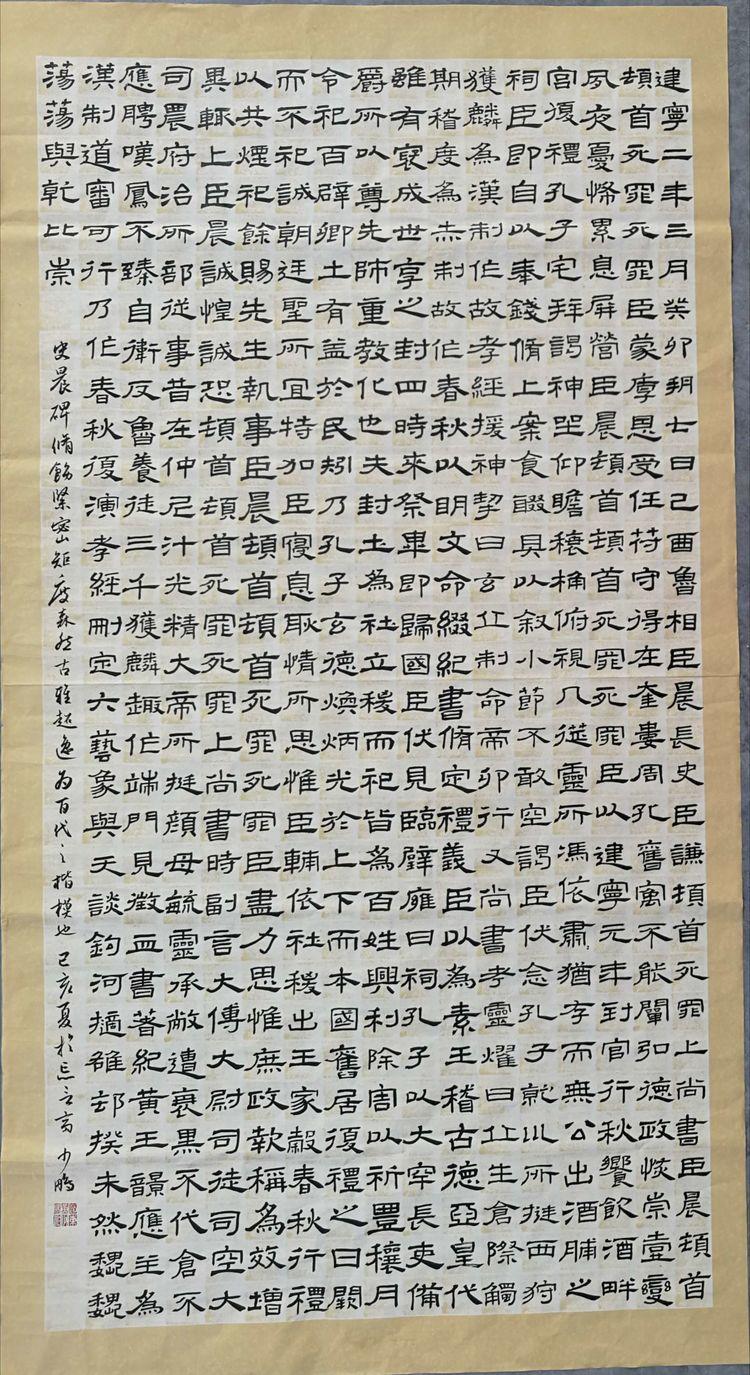 建寧二年三月癸卯朔七日己酉魯相臣晨長史臣謙頓首死罪上尚書臣晨頓首
頓首死罪死罪臣蒙厚恩受任符守得在奎婁周孔舊寓不能闡弘德政恢崇壹變
夙夜憂怖累息屏營臣晨頓首頓首死罪死罪臣以建寧元年到官行秋饗飲酒畔
宮復禮孔子宅拜謁神坐仰瞻榱桷俯視几筵靈所馮依肅猶存而無公出酒脯之
祠臣即自以奉錢脩上案食醊具以敘小節不敢空謁臣伏念孔子就巛所挺西狩
獲麟為漢制作故孝經援神挈曰玄丘制命帝卯行又尚書考靈燿曰丘生倉際觸
期稽度為赤制故作春秋以明文命綴紀書脩定禮義臣以為素王稽古德亞皇代
雖有褒成世享之封四時來祭畢即歸國臣伏見臨辟雍日祠孔子以大牢長吏備
爵所以尊先師重教化也夫封土為社立稷而祀皆為百姓興利除害以祈豐穰月
令祀百辟卿士有益於民矧乃孔子玄德煥炳光於上下而本國舊居復禮之日闕
而不祀誠朝廷聖所宜特加臣寢息耿情所思惟臣輔依社稷出王家穀春秋行禮
以共煙祀餘賜先生執事臣晨頓首頓首死罪死罪臣盡力思惟庶政報稱為效增
異輒上臣晨誠惶誠恐頓首頓首死罪死罪上尚書時副言大傅大尉司徒司空大
司農府治所部從事昔在仲尼汁光精大帝所挺顏母毓靈承敝遭衰黑不代倉不
應聘嘆鳳不臻自衛反魯養徒三千獲麟趣作端門見徵血書著紀黃玉韻應主為
漢制道審可行乃作春秋復演孝經刪定六藝象與天談鉤河摘雒卻揆未然魏魏
蕩蕩與乾比崇
史晨碑脩飭緊密矩度森然古雅超逸为百代之楷模也己亥夏於忘言斎少鵬